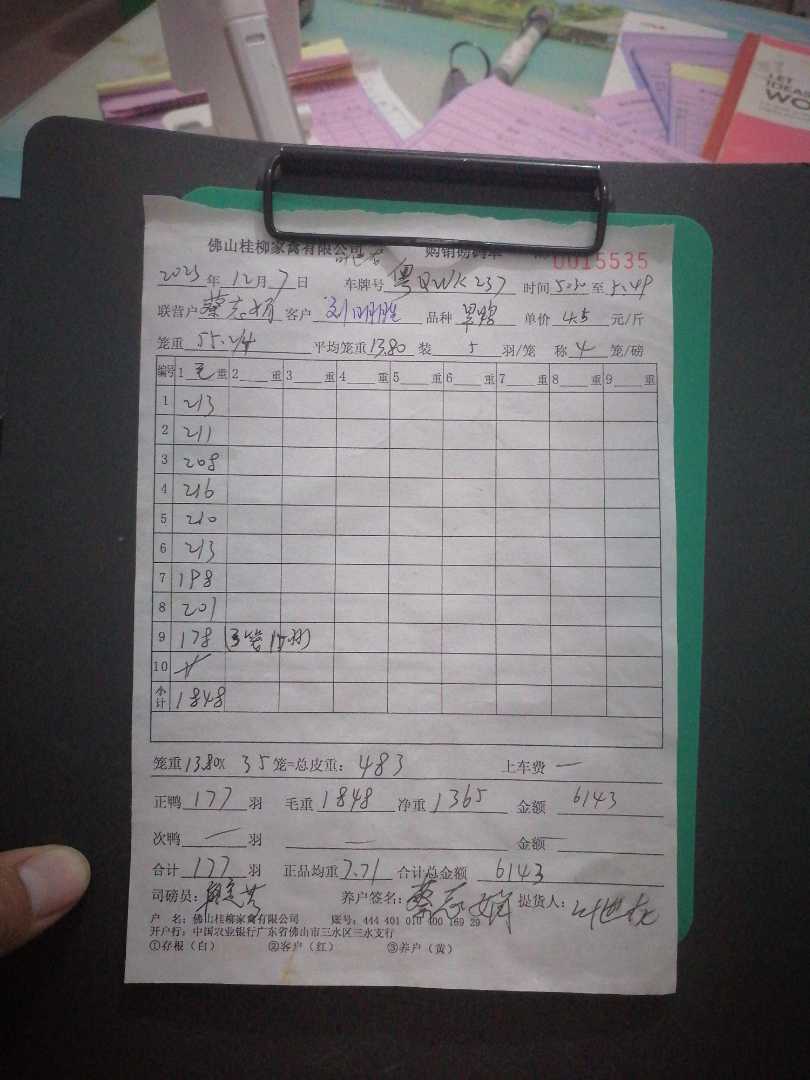 LET
IDEAS
WO
佛山桂柳家禽有限公司 购销磅码单
0015535
2023年12月7日 车牌号粤QWK237 时间5:30至5:49
联营户蔡志娟 客户刘明胜 品种 单价4.5元/斤
笼重55.2/4 平均笼重13.80装5羽/笼 称4笼/磅
编号 1毛重 2重 3重 4重 5重 6重 7重 8重 9重
1 213
2 211
3 208
4 216
5 210
6 213
7 198
8 201
9 178 (3笼17羽)
10
小计 1848
笼重13.80X 35笼=总皮重:483 上车费 一
正鸭177羽 毛重1848 净重1365 金额6143
次鸭一羽 一 金额一
合计177羽 正品均重7.71 合计总金额6143
司磅员: 养户签名:蔡志娟 提货人:
户 名:佛山桂柳家禽有限公司 账号:444 401 010 400 169 29
开户行:中国农业银行广东省佛山市三水区三水支行
①存根(白) ②客户(红) ③养户(黄)